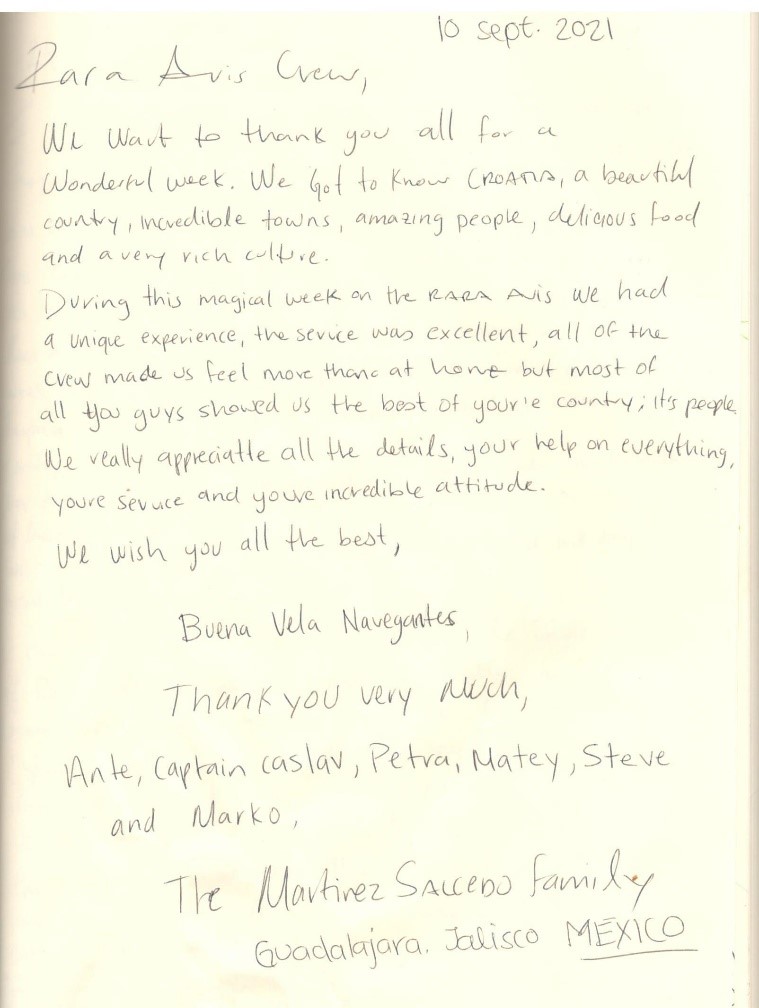 10 sept. 2021
Rara Avis Crew,
We Want to thank you all for a
Wonderful week. We Got to Know CROATIA, a beautiful
country, incredible towns, amazing people, delicious food
and a very rich culture.
During this magical week on the RARA Avis we had
a unique experience, the sevice was excellent, all of the
crew made us feel more thane at home but most of
all you guys showed us the best of your'e country; It's people
We really appreciatte all the details, your help on everything,
youre sevuice and youre incredible attitude.
We wish you all the best,
Buena Vela Navegantes,
Thank you very Much,
Ante, Captain caslav, Petra, Matey, Steve
and Marko,
The Martinez SALCEDO Family
Guadalajara. Jalisco MEXICO